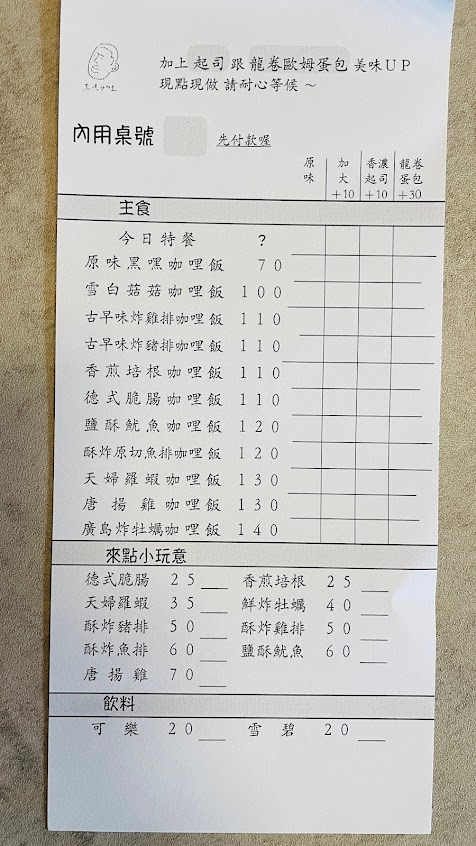 加上 起司 跟 龍卷歐姆蛋包 美味UP
現點現做 請耐心等候 ～
內用桌號
先付款喔
原味 加大+10 香濃起司+10 龍卷蛋包+30
主食
今日特餐 ?
原味黑嘿咖哩飯 70
雪白菇菇咖哩飯 100
古早味炸雞排咖哩飯 110
古早味炸豬排咖哩飯 110
香煎培根咖哩飯 110
德式脆腸咖哩飯 110
鹽酥魷魚咖哩飯 120
酥炸原切魚排咖哩飯 120
天婦羅蝦咖哩飯 130
唐揚雞咖哩飯 130
廣島炸牡蠣咖哩飯 140
來點小玩意
德式脆腸 25 香煎培根 25
天婦羅蝦 35 鮮炸牡蠣 40
酥炸豬排 50 酥炸雞排 50
酥炸魚排 60 鹽酥魷魚 60
唐揚雞 70
飲料
可樂 20 雪碧 20